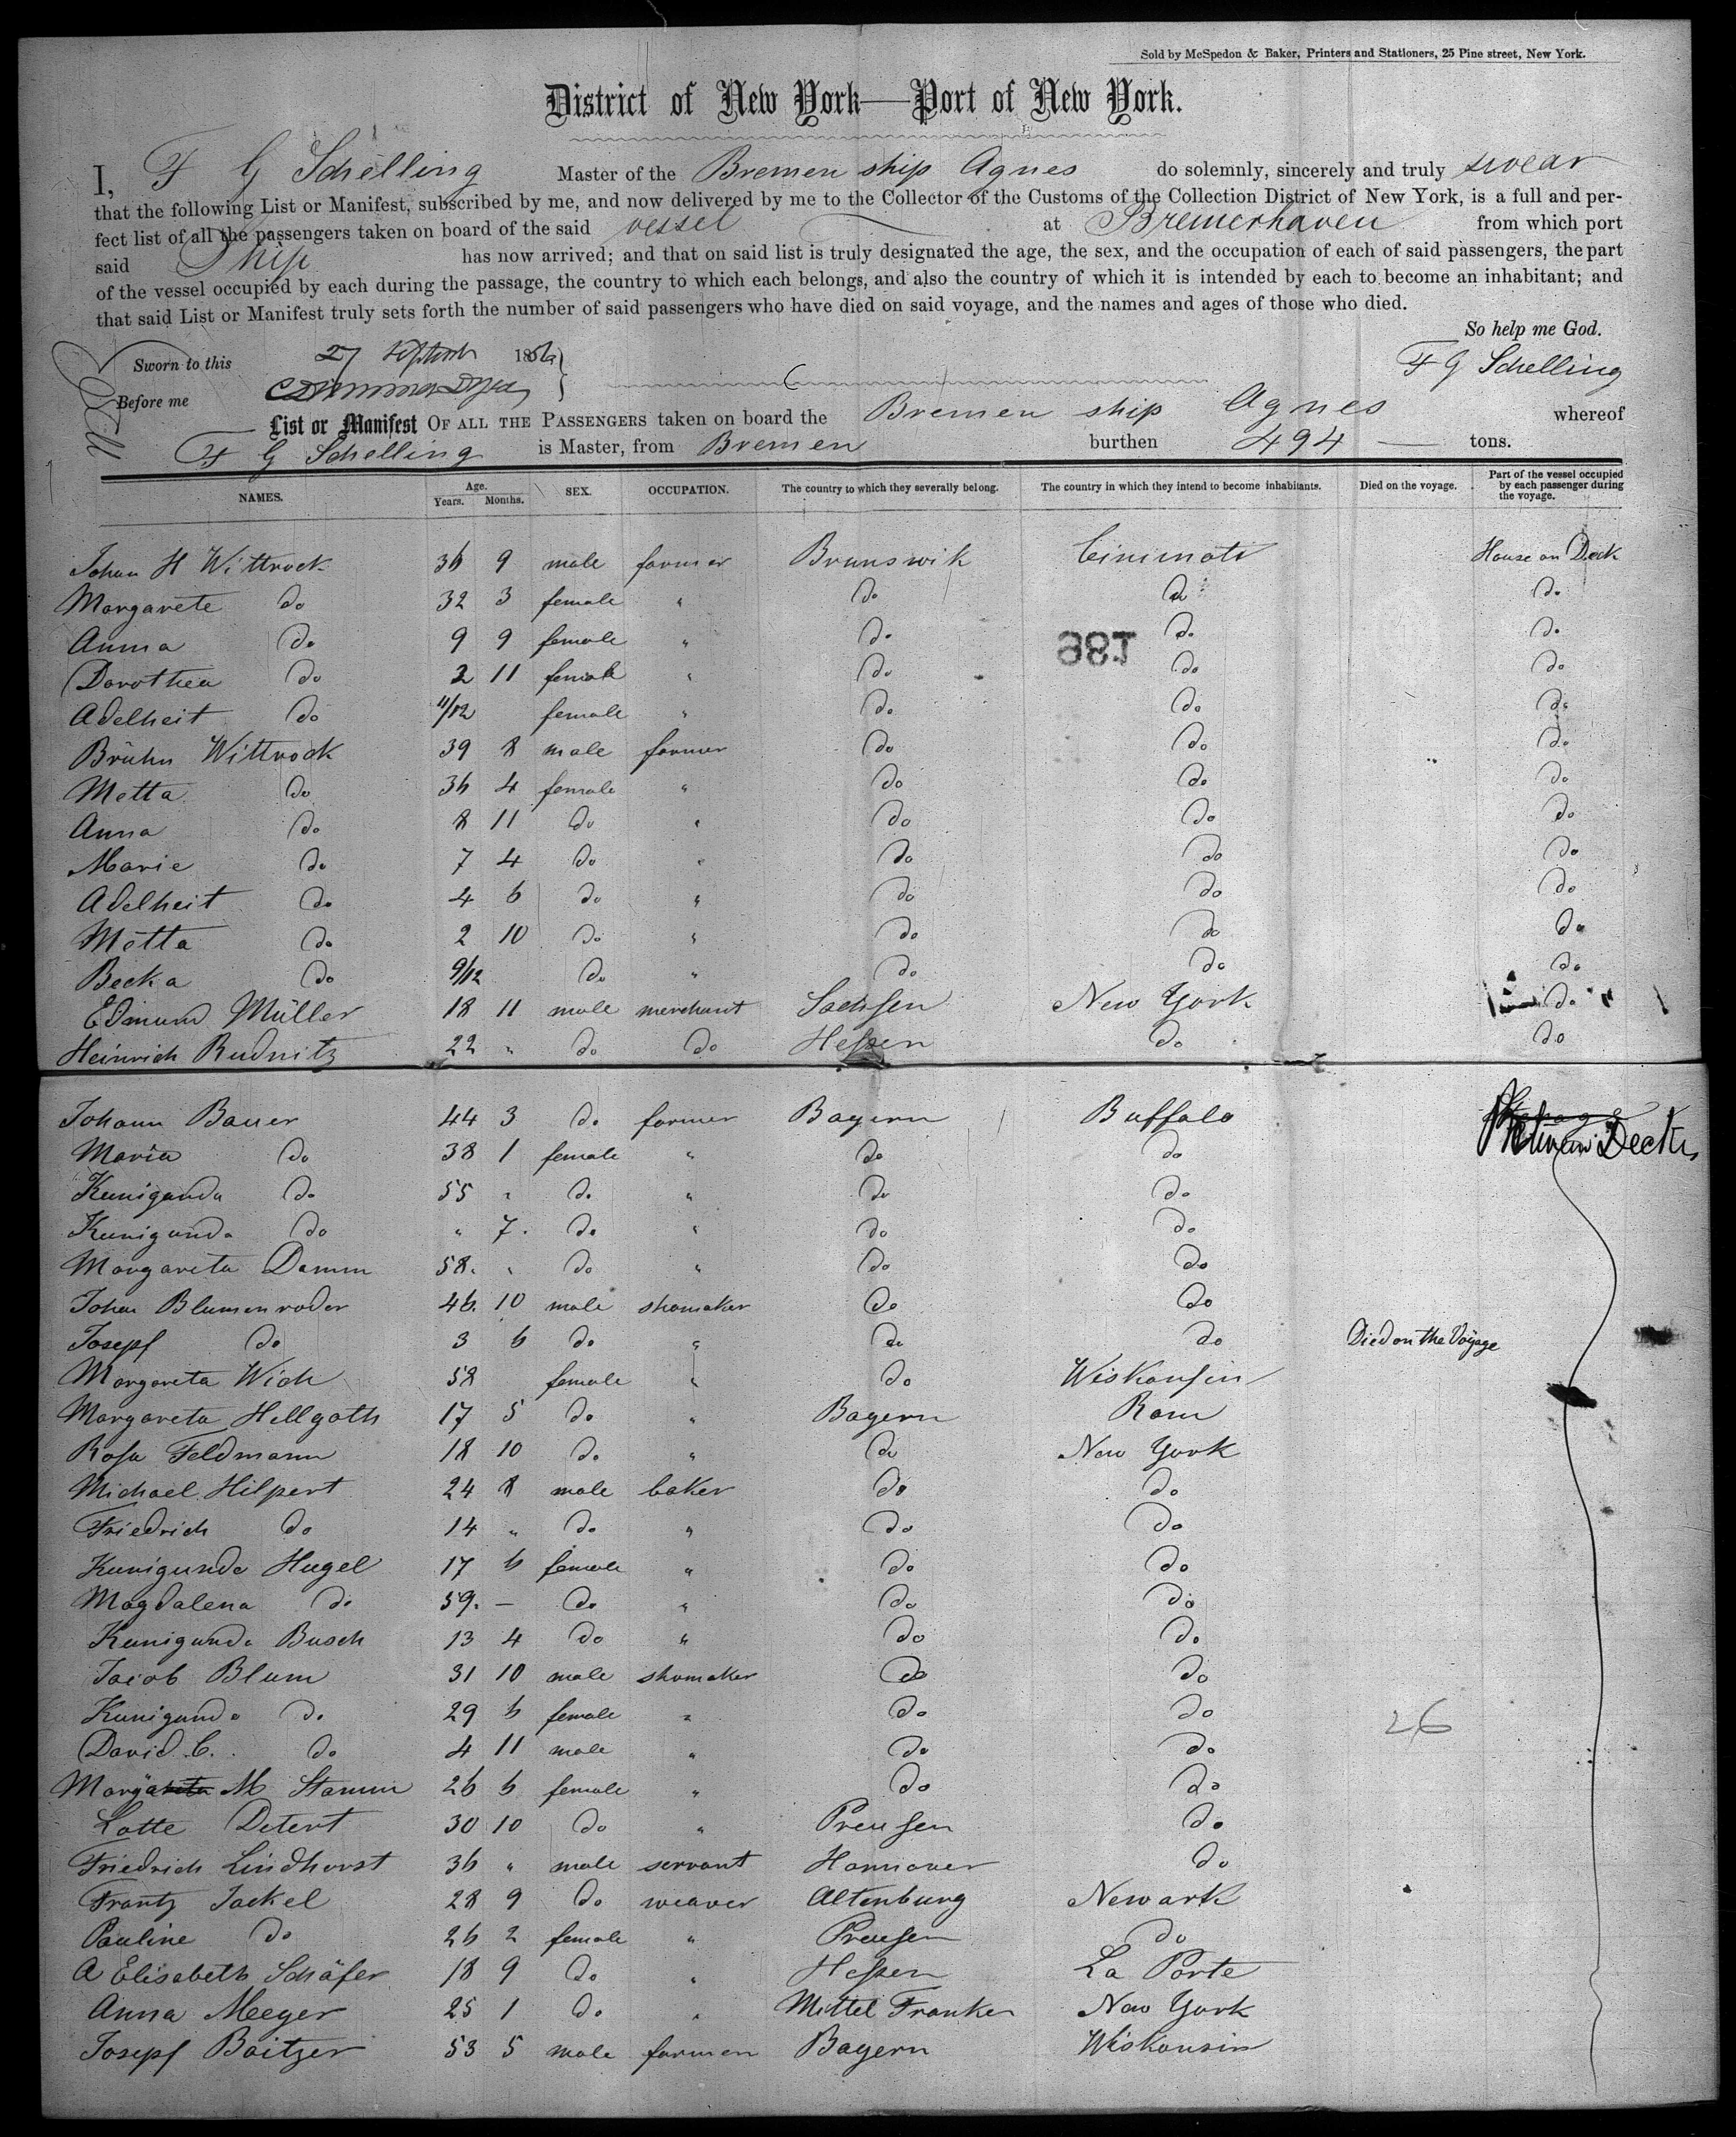 Sold by McSpedon & Baker, Printers and Stationers, 25 Pine street, New York.
District of New York—Port of New York.
I, F G Schelling Master of the Bremen ship Agnes do solemnly, sincerely and truly swear
that the following List or Manifest, subscribed by me, and now delivered by me to the Collector of the Customs of the Collection District of New York, is a full and per-
fect list of all the passengers taken on board of the said vessel at Bremerhaven from which port
said Ship has now arrived; and that on said list is truly designated the age, the sex, and the occupation of each of said passengers, the part
of the vessel occupied by each during the passage, the country to which each belongs, and also the country of which it is intended by each to become an inhabitant; and
that said List or Manifest truly sets forth the number of said passengers who have died on said voyage, and the names and ages of those who died.
So help me God.
Sworn to this 27 185
F G Schelling
Before me
List or Manifest OF ALL THE PASSENGERS taken on board the Bremen ship Agnes whereof
F G Schelling is Master, from Bremen burthen 494 — tons.
NAMES. Age. Years. Months. SEX. OCCUPATION. The country to which they severally belong. The country in which they intend to become inhabitants. Died on the voyage. Part of the vessel occupied by each passenger during the voyage.
Johan H Wittrock 36 9 male farmer Brunswik Cincinati House on Deck
Margarete do 32 3 female " do do do
Anna do 9 9 female " do do do
198
Dorothea do 2 11 female " do do do
Adelheit do 11/12 female " do do do
Brühn Wittrock 39 8 male farmer do do do
Metta do 36 4 female " do do do
Anna do 8 11 do " do do do
Marie do 7 4 do " do do do
Adelheit do 4 6 do " do do do
Metta do 2 10 do " do do do
Becka do 9/12 do " do do do
Edmund Müller 18 11 male merchant Sachsen New York do
Heinrich Rudnitz 22 " do do Hessen do do
Johann Bauer 44 3 do farmer Bayern Buffalo Decks
Maria do 38 1 female " do do
Kunigunda do 55 " do " do do
Kunigunda do " 7 do " do do
Margareta Damm 58 " do " do do
Johan Blumenroder 46 10 male shomaker do do
Josepf do 3 6 do " do do Died on the Voyage
Margareta Wich 58 female " do Wiskonsin
Margareta Hellgoth 17 5 do " Bayern Rom
Rosa Feldmann 18 10 do " do New York
Michael Hilpert 24 8 male baker do do
Friedrich do 14 " do " do do
Kunigunda Hugel 17 6 female " do do
Magdalena do 59 — do " do do
Kunigunda Busch 13 4 do " do do
Jacob Blum 31 10 male shomaker do do
Kunigunda do 29 6 female " do do
26
David C. do 4 11 male " do do
Margareta M Stamm 26 6 female " do do
Lotte Detert 30 10 do " Preusen do
Friedrich Lindhorst 36 " male servant Hannover do
Frantz Jackel 28 9 do weaver Altenburg Newark
Pauline do 26 2 female " Preusen do
A Elisabeth Schäfer 18 9 do " Hessen La Porte
Anna Meeger 25 1 do " Mittel Franken New York
Josepf Baitzer 53 5 male farmer Bayern Wiskonsin